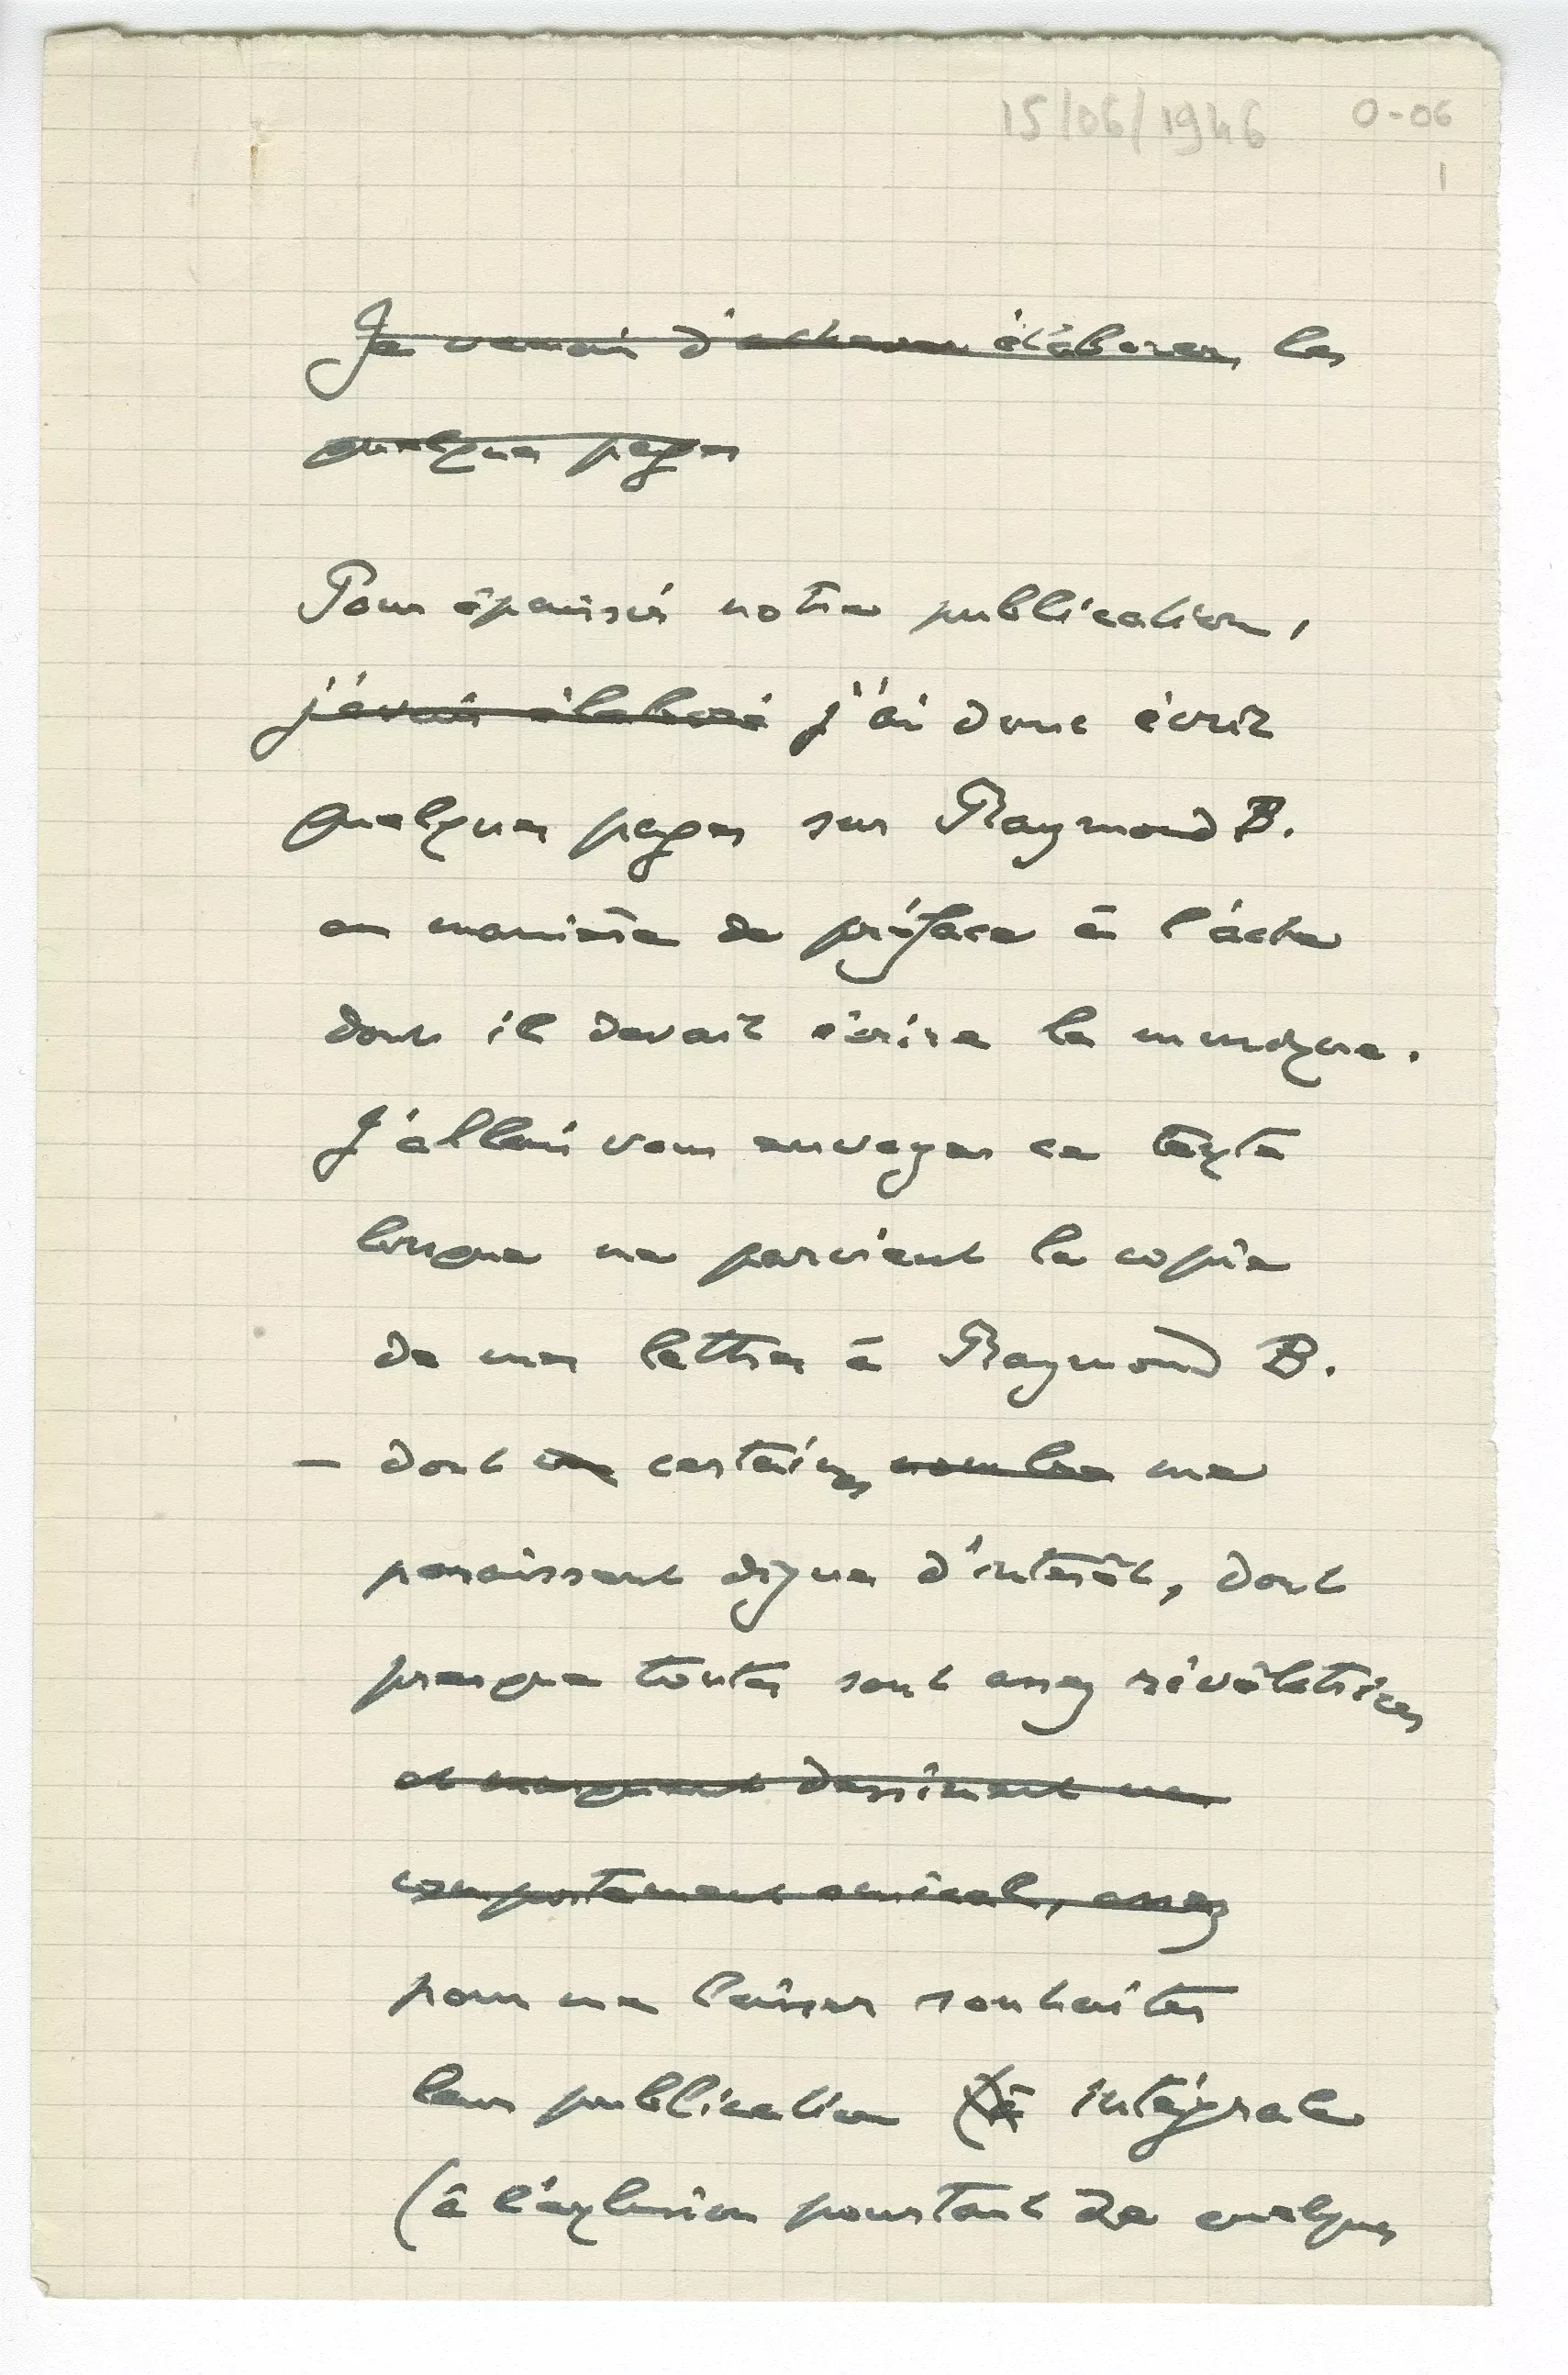 15/06/1946 0-06
1
Je venais d'achever élaborer les
quelques pages
Pour épaissir notre publication,
j'avais élaboré j'ai donc écrit
quelques pages sur Raymond B.
en manière de préface à l'acte
dont il devait écrire la musique.
J'allais vous envoyer ce texte
lorsque me parvient la copie
de mes lettres à Raymond B.
— dont un certaines nombre me
paraissent dignes d'intérêt, dont
presque toutes sont assez révélatrices
et dessinent un
comportement amical, assez
pour me laisser souhaiter
leur publication (à intégrale
(à l'exclusion pourtant de quelques